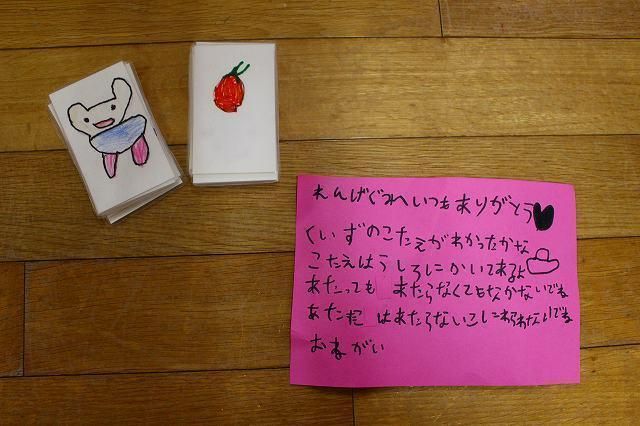 れんげぐみへいつもありがとう
くいずのこたえがわかったかな
こたえはうしろにかいてあるよ
あたっても あたらなくてもなかないでね
はあたらないこにわらわないでね
おねがい